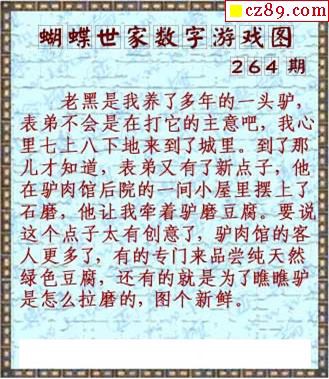 cz89.com
蝴蝶世家数字游戏图
264 期
老黑是我养了多年的一头驴，
表弟不会是在打它的主意吧，我心
里七上八下地来到了城里。到了那
儿才知道，表弟又有了新点子，他
在驴肉馆后院的一间小屋里摆上了
石磨，他让我牵着驴磨豆腐。要说
这个点子太有创意了，驴肉馆的客
人更多了，有的专门来品尝纯天然
绿色豆腐，还有的就是为了瞧瞧驴
是怎么拉磨的，图个新鲜。